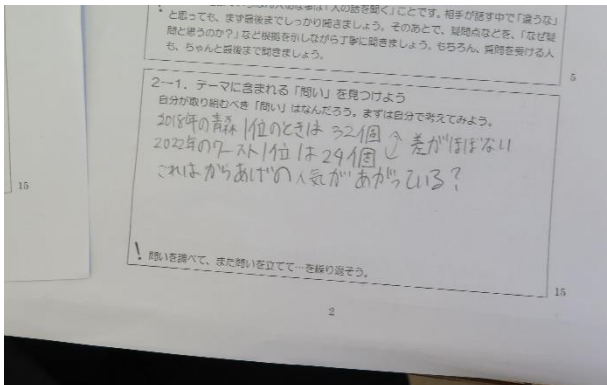 人の話を聞く」ことです。相手が話す中で「違うな」
と思っても、まず最後までしっかり聞きましょう。そのあとで、疑問点などを、「なぜ疑
問と思うのか?」など根拠を示しながら丁寧に聞きましょう。もちろん、質問を受ける人
も、ちゃんと最後まで聞きましょう。
5
2－1．テーマに含まれる「問い」を見つけよう
自分が取り組むべき「問い」はなんだろう。まずは自分で考えてみよう。
2018年の青森1位のときは 32個
差がほぼない
2022年のワースト1位は24個
これはからあげの人気があがっている?
15
! 問いを調べて、また問いを立てて…を繰り返そう。
15
2